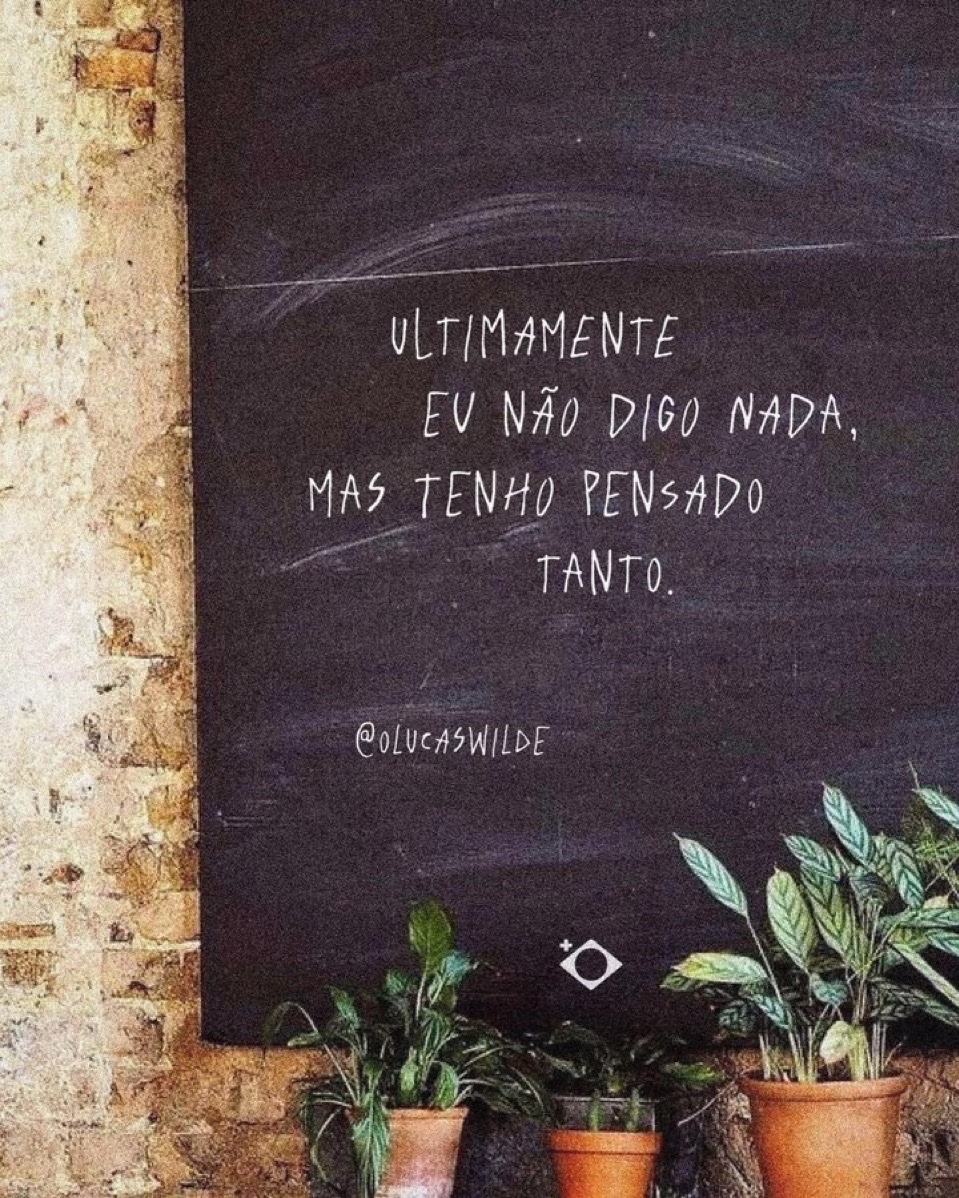 ULTIMAMENTE
EU NÃO DIGO NADA,
MAS TENHO PENSADO
TANTO.
@OLUCASWILDE